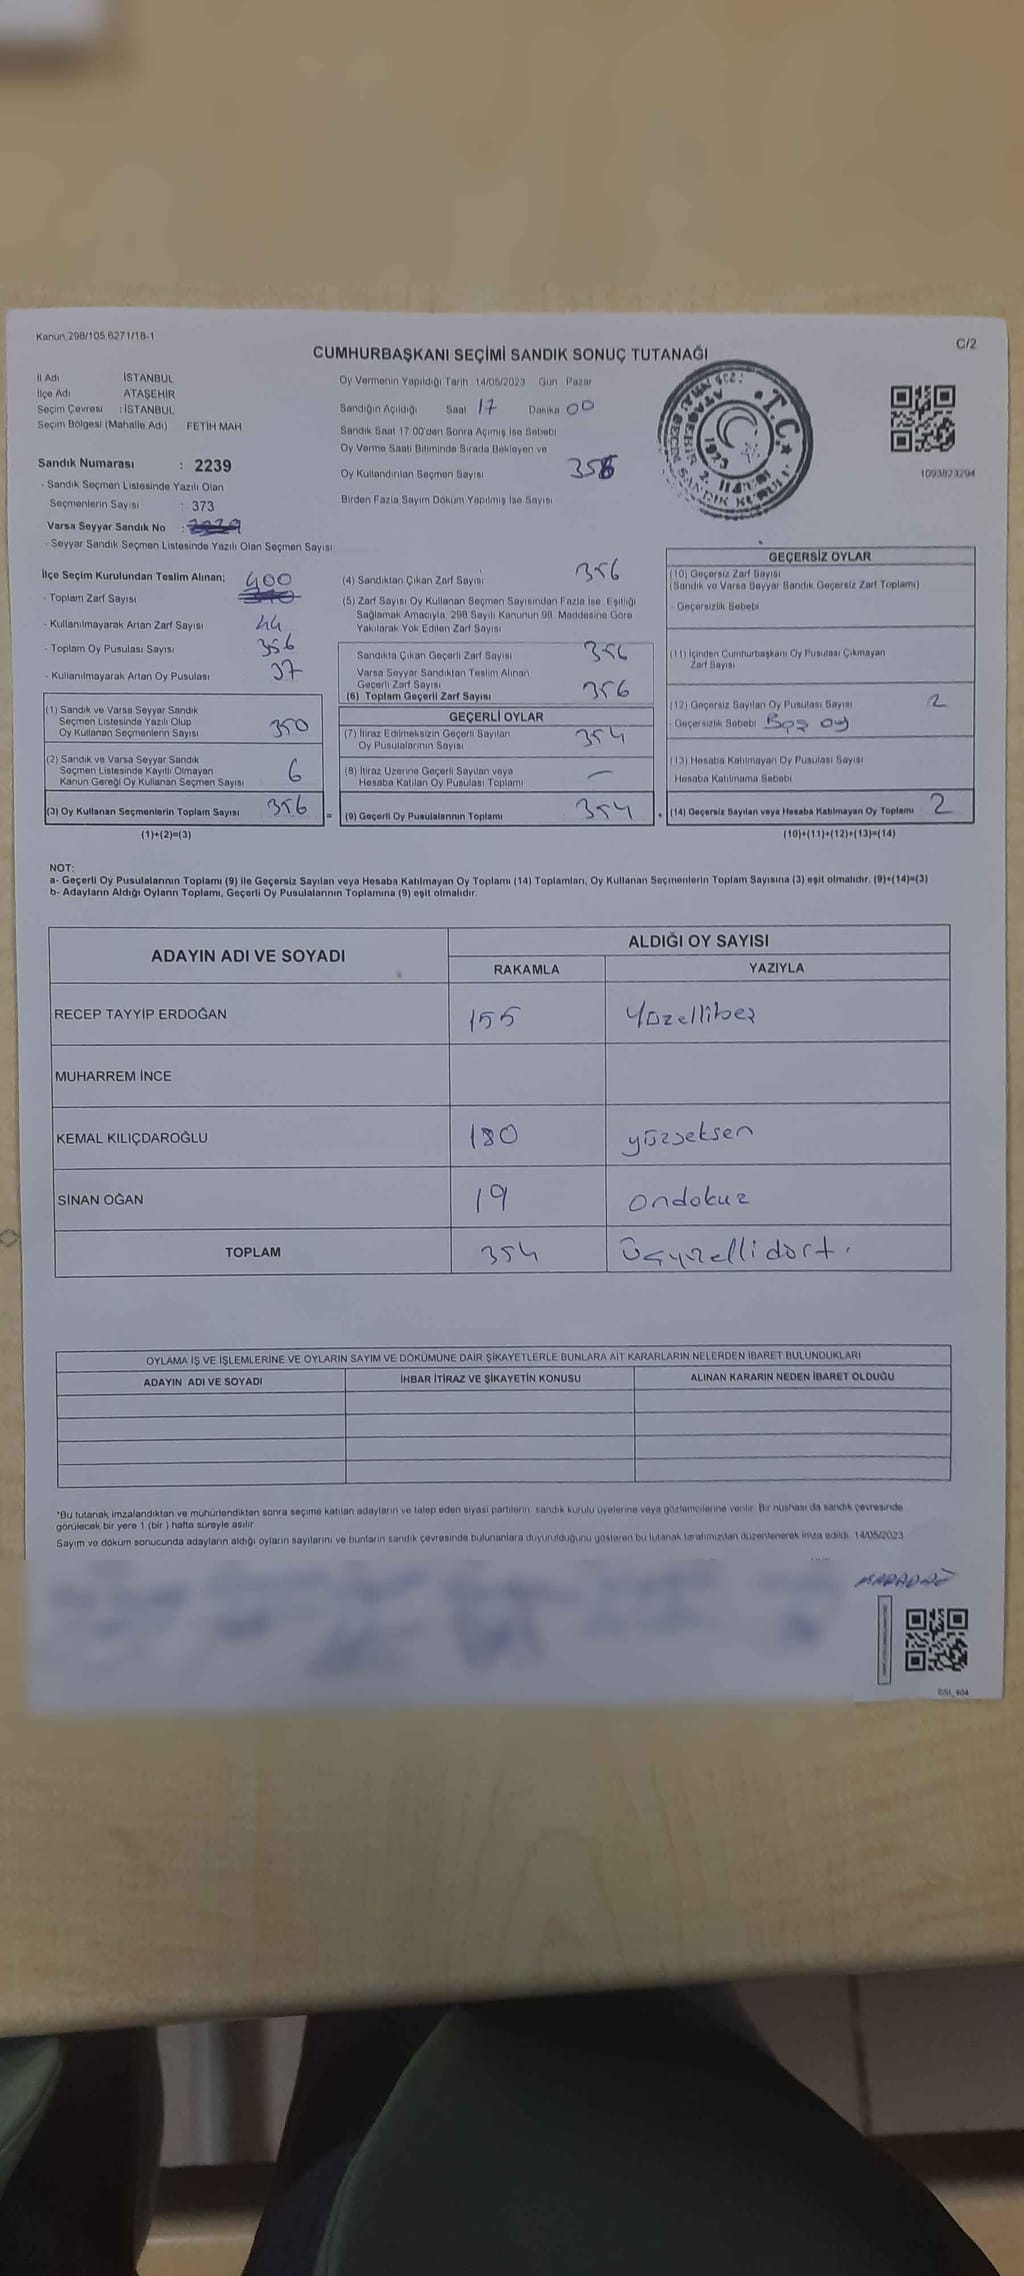 Kanun.298/105,6271/18-1
C/2
CUMHURBAŞKANI SEÇİMİ SANDIK SONUÇ TUTANAĞI
İl Adı İSTANBUL
İlçe Adı ATAŞEHİR
Seçim Çevresi : İSTANBUL
Seçim Bölgesi (Mahalle Adı) FETİH MAH
Sandık Numarası : 2239
- Sandık Seçmen Listesinde Yazılı Olan
Seçmenlerin Sayısı : 373
Varsa Seyyar Sandık No :
- Seyyar Sandık Seçmen Listesinde Yazılı Olan Seçmen Sayısı
Oy Vermenin Yapıldığı Tarih : 14/05/2023 Gün Pazar
Sandığın Açıldığı Saat 17 Dakika 00
Sandık Saat 17:00'den Sonra Açılmış İse Sebebi
Oy Verme Saati Bitiminde Sırada Bekleyen ve
Oy Kullandırılan Seçmen Sayısı
Birden Fazla Sayım Döküm Yapılmış İse Sayısı
1093823294
İlçe Seçim Kurulundan Teslim Alınan; 400
- Toplam Zarf Sayısı
- Kullanılmayarak Artan Zarf Sayısı 44
- Toplam Oy Pusulası Sayısı 356
- Kullanılmayarak Artan Oy Pusulası 37
(1) Sandık ve Varsa Seyyar Sandık
Seçmen Listesinde Yazılı Olup
Oy Kullanan Seçmenlerin Sayısı 350
(2) Sandık ve Varsa Seyyar Sandık
Seçmen Listesinde Kayıtlı Olmayan
Kanun Gereği Oy Kullanan Seçmen Sayısı 6
(3) Oy Kullanan Seçmenlerin Toplam Sayısı 356
(1)+(2)=(3)
(4) Sandıktan Çıkan Zarf Sayısı 356
(5) Zarf Sayısı Oy Kullanan Seçmen Sayısından Fazla İse, Eşitliği
Sağlamak Amacıyla, 298 Sayılı Kanunun 98. Maddesine Göre
Yakılarak Yok Edilen Zarf Sayısı
Sandıkta Çıkan Geçerli Zarf Sayısı 356
Varsa Seyyar Sandıktan Teslim Alınan
Geçerli Zarf Sayısı
(6) Toplam Geçerli Zarf Sayısı 356
GEÇERLİ OYLAR
(7) İtiraz Edilmeksizin Geçerli Sayılan
Oy Pusulalarının Sayısı 354
(8) İtiraz Üzerine Geçerli Sayılan veya
Hesaba Katılan Oy Pusulası Toplamı —
= (9) Geçerli Oy Pusulalarının Toplamı 354
GEÇERSİZ OYLAR
(10) Geçersiz Zarf Sayısı
(Sandık ve Varsa Seyyar Sandık Geçersiz Zarf Toplamı)
- Geçersizlik Sebebi
(11) İçinden Cumhurbaşkanı Oy Pusulası Çıkmayan
Zarf Sayısı
(12) Geçersiz Sayılan Oy Pusulası Sayısı 2
- Geçersizlik Sebebi Boş oy
(13) Hesaba Katılmayan Oy Pusulası Sayısı
Hesaba Katılmama Sebebi
+ (14) Geçersiz Sayılan veya Hesaba Katılmayan Oy Toplamı 2
(10)+(11)+(12)+(13)=(14)
NOT:
a- Geçerli Oy Pusulalarının Toplamı (9) ile Geçersiz Sayılan veya Hesaba Katılmayan Oy Toplamı (14) Toplamları, Oy Kullanan Seçmenlerin Toplam Sayısına (3) eşit olmalıdır. (9)+(14)=(3)
b- Adayların Aldığı Oyların Toplamı, Geçerli Oy Pusulalarının Toplamına (9) eşit olmalıdır.
ADAYIN ADI VE SOYADI ALDIĞI OY SAYISI
RAKAMLA YAZIYLA
RECEP TAYYİP ERDOĞAN 155 Yüzellibeş
MUHARREM İNCE
KEMAL KILIÇDAROĞLU 180 yüzseksen
SİNAN OĞAN 19 ondokuz
TOPLAM 354 Üçyüzellidört.
OYLAMA İŞ VE İŞLEMLERİNE VE OYLARIN SAYIM VE DÖKÜMÜNE DAİR ŞİKAYETLERLE BUNLARA AİT KARARLARIN NELERDEN İBARET BULUNDUKLARI
ADAYIN ADI VE SOYADI İHBAR İTİRAZ VE ŞİKAYETİN KONUSU ALINAN KARARIN NEDEN İBARET OLDUĞU
*Bu tutanak imzalandıktan ve mühürlendikten sonra seçime katılan adayların ve talep eden siyasi partilerin, sandık kurulu üyelerine veya gözlemcilerine verilir. Bir nüshası da sandık çevresinde
görülecek bir yere 1 (bir ) hafta süreyle asılır
Sayım ve döküm sonucunda adayların aldığı oyların sayılarını ve bunların sandık çevresinde bulunanlara duyurulduğunu gösteren bu tutanak tarafımızdan düzenlenerek imza edildi. 14/05/2023